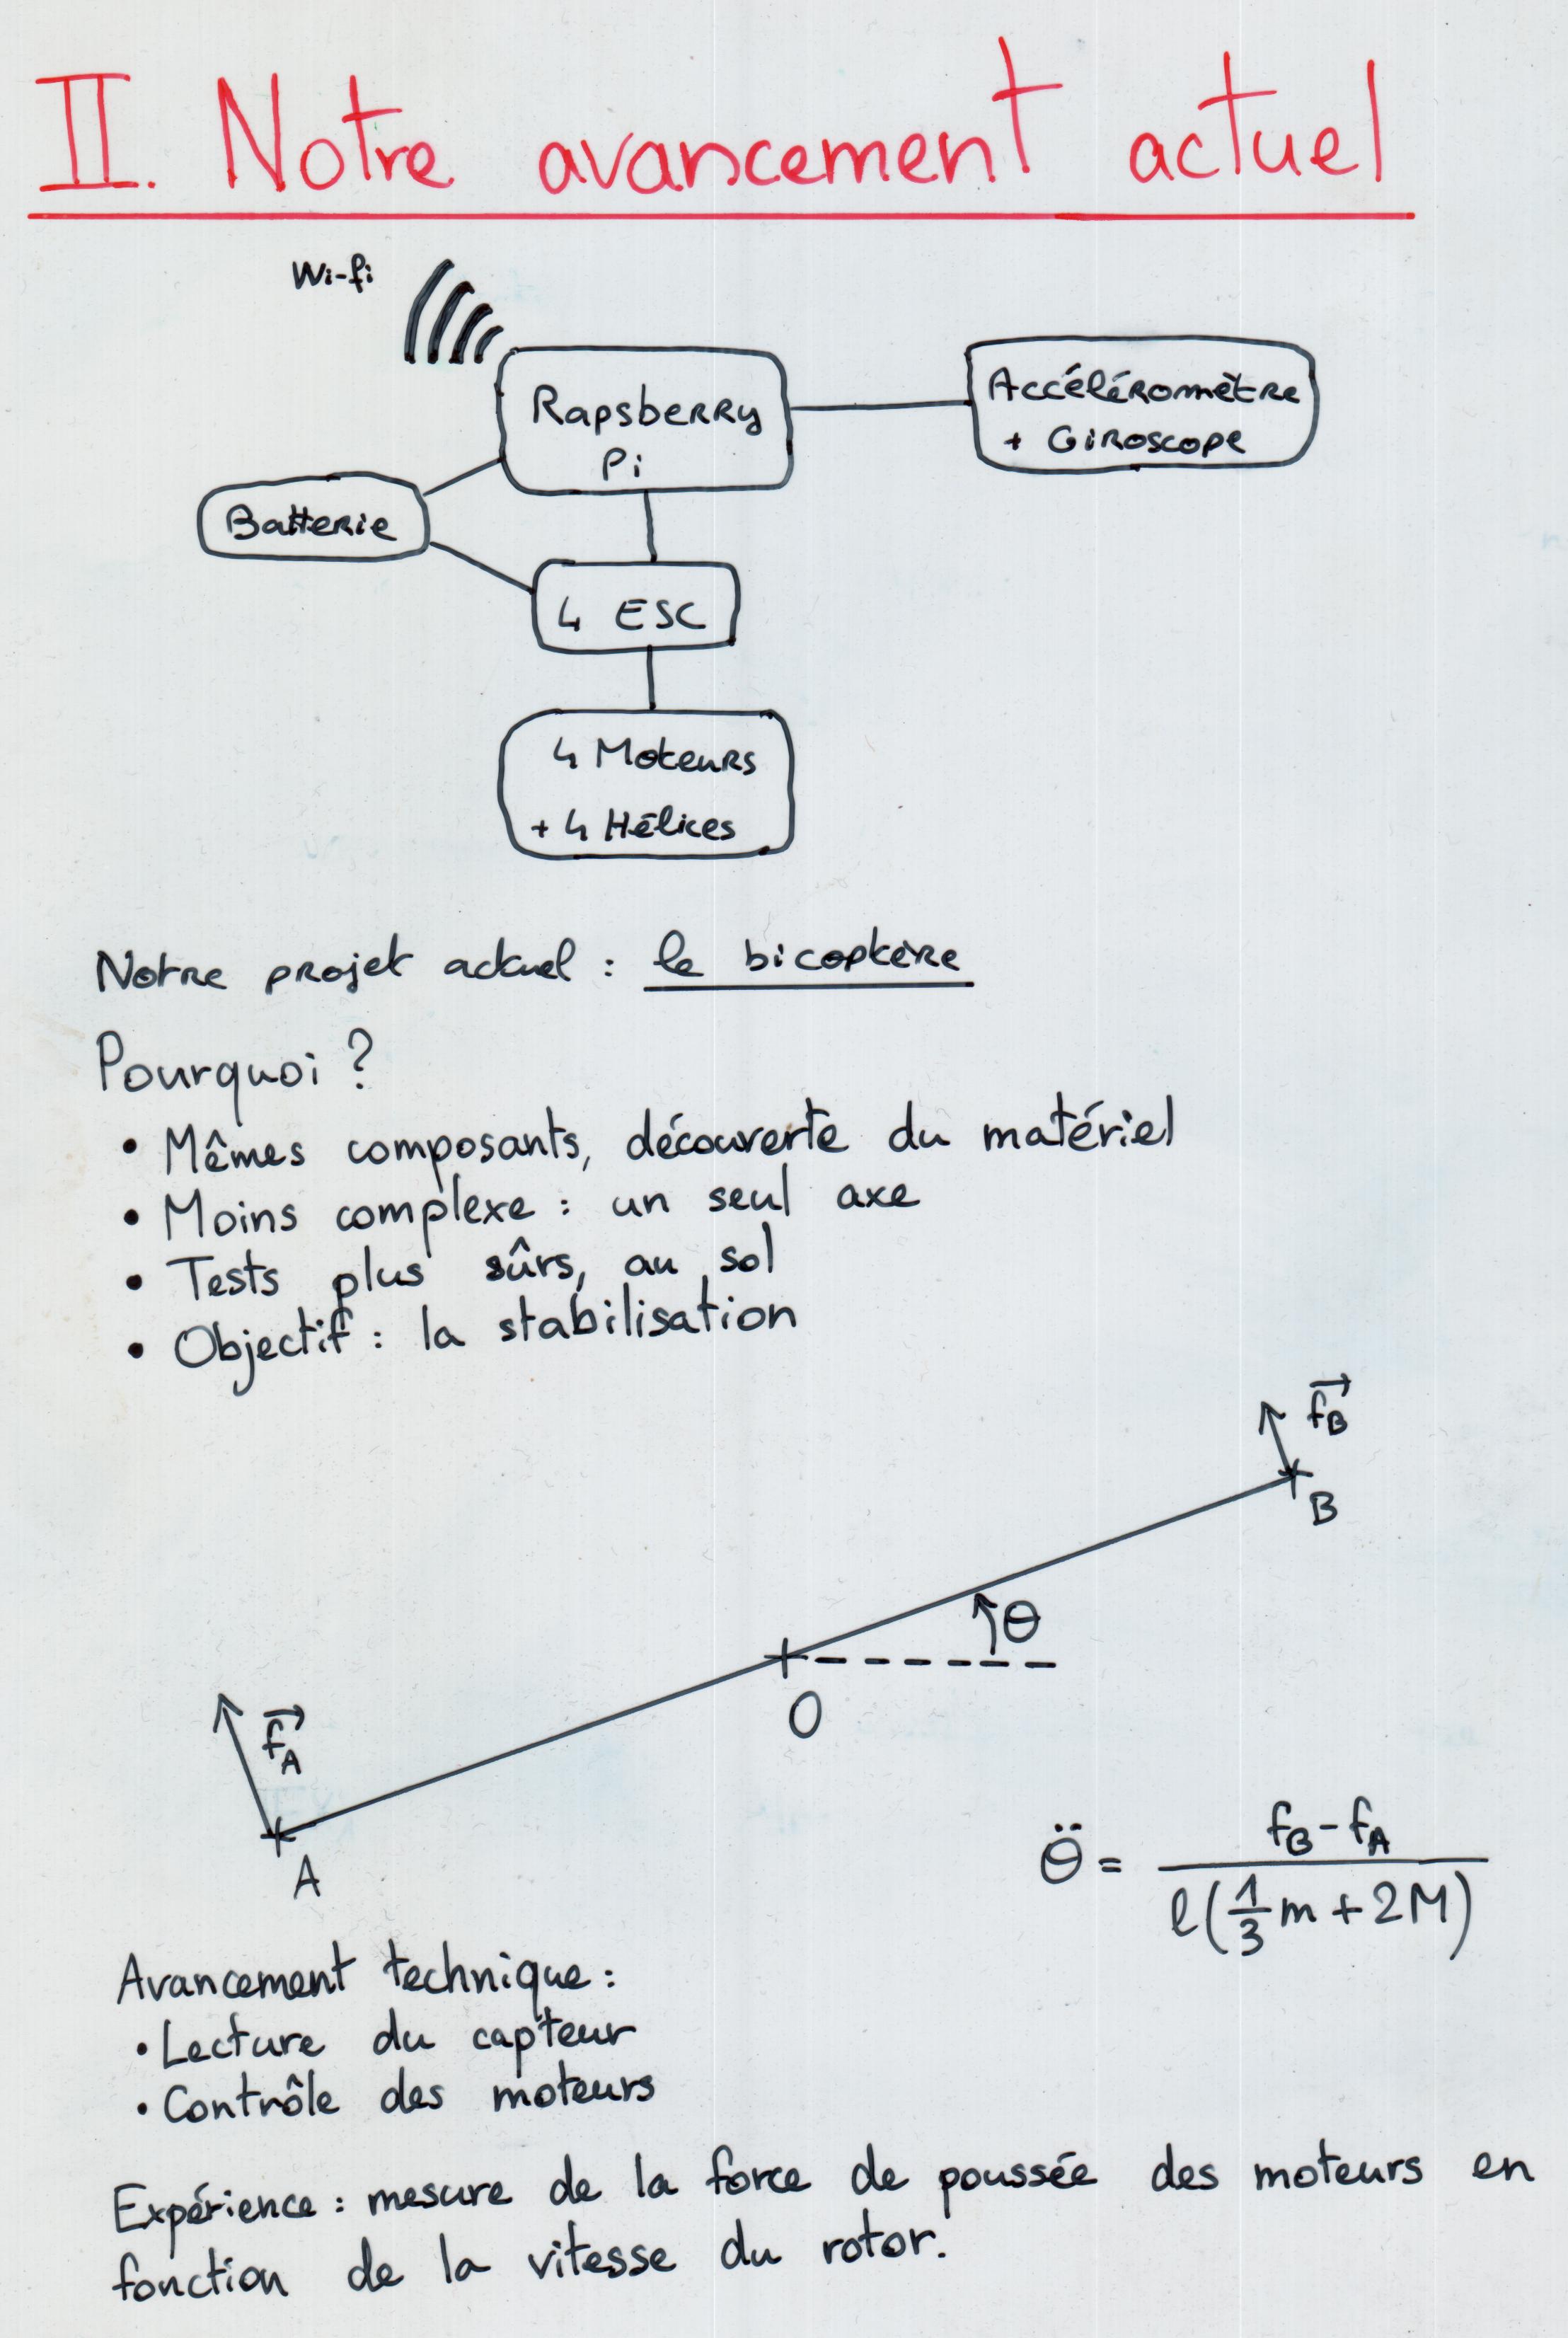 II. Notre avancement actuel
Wi-fi
Rapsberry
Pi
Accéléromètre
+ Giroscope
Batterie
4 ESC
4 Moteurs
+ 4 Hélices
Notre projet actuel : le bicoptère
Pourquoi ?
• Mêmes composants, découverte du matériel
• Moins complexe : un seul axe
• Tests plus sûrs, au sol
• Objectif : la stabilisation
f⃗B
B
θ
O
f⃗A
A
θ̈ = (fB - fA) / (l(1/3 m + 2M))
Avancement technique :
• Lecture du capteur
• Contrôle des moteurs
Expérience : mesure de la force de poussée des moteurs en
fonction de la vitesse du rotor.